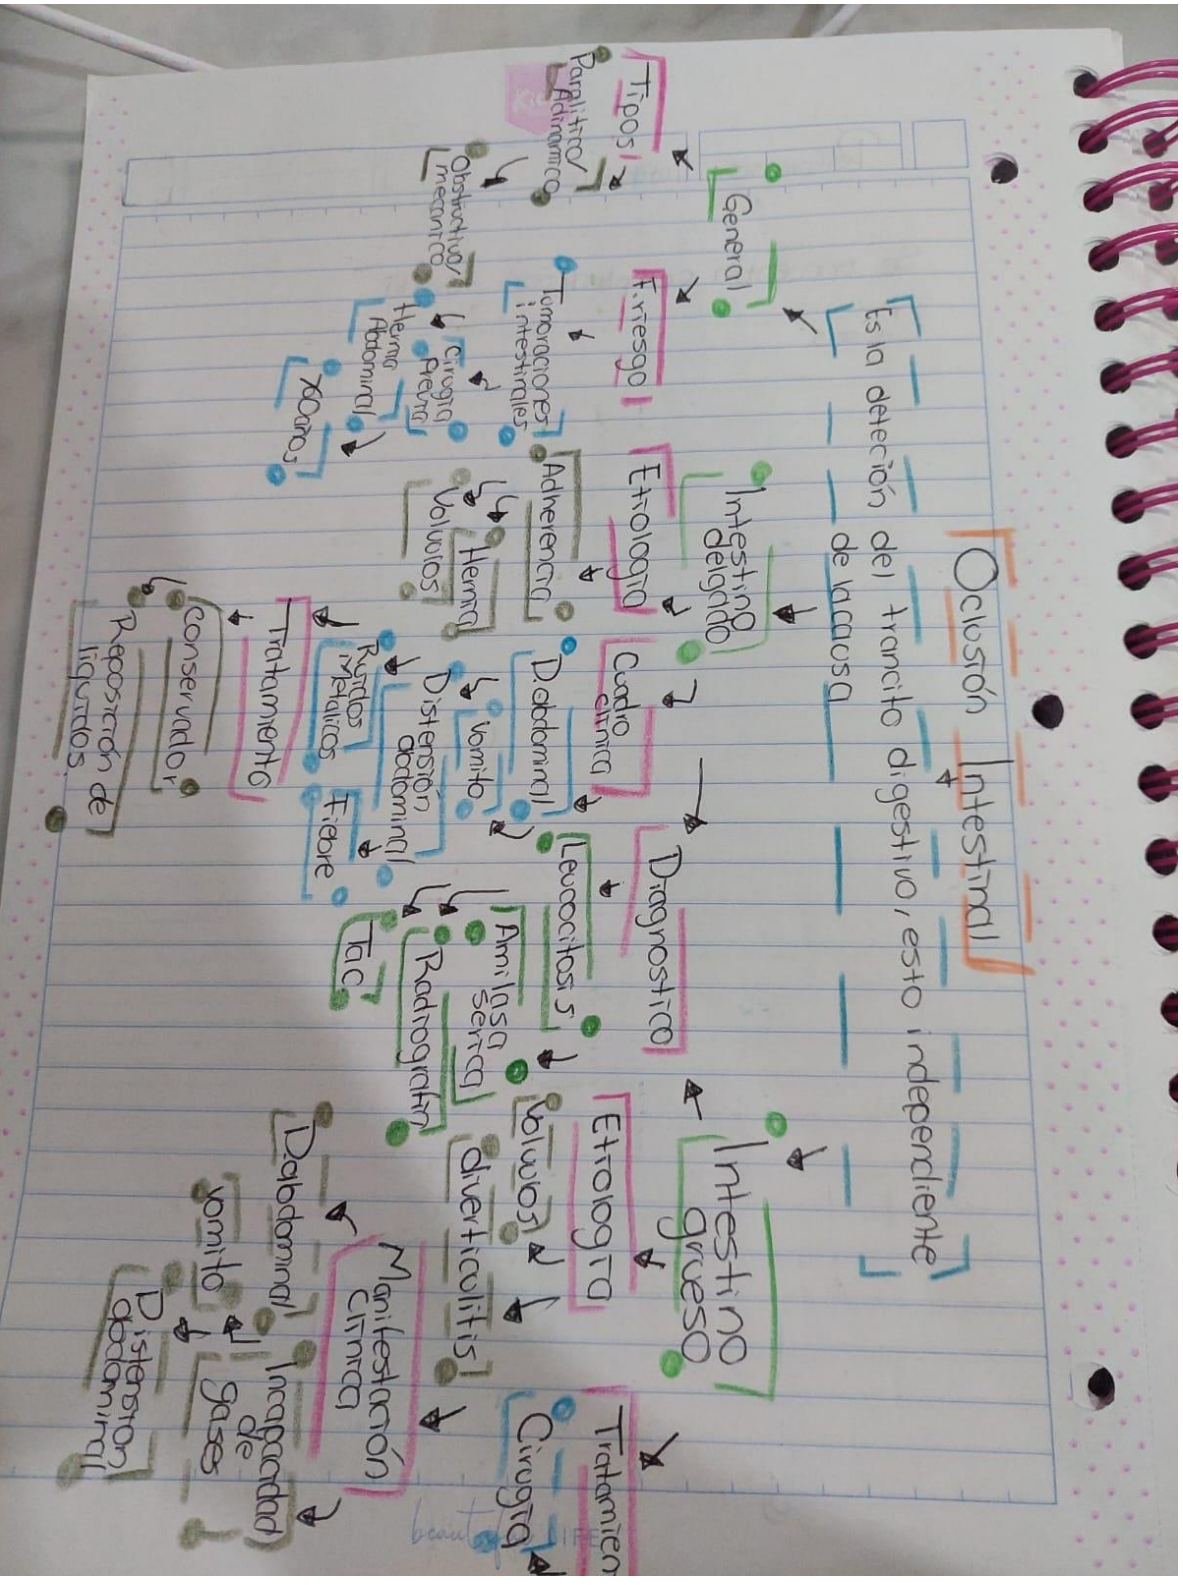 Oclusión Intestinal
Es la deteción del trancito digestivo, esto independiente
de la causa
General
Tipos
Paralitico/
Adinamico
Obstructivo/
mecanico
F. riesgo
Tumoraciones
intestinales
Cirugia
Previa
Hernia
Abdominal
>60años
Intestino
delgado
Etiología
Adherencia
Hernia
Volvulos
Cuadro
clinica
D.abdominal
Vomito
Distensión
abdominal
Ruidos
Metalicos
Fiebre
Tratamiento
Conservador
Reposición de
liquidos
Diagnostico
Leucocitosis
Amilasa
serica
Radiografia
Tac
Intestino
grueso
Etiologia
Volvulos
diverticulitis
Manifestación
Clinica
D.abdominal
vomito
Incapacidad
de
gases
Distension
abdominal
Tratamien
Cirugía